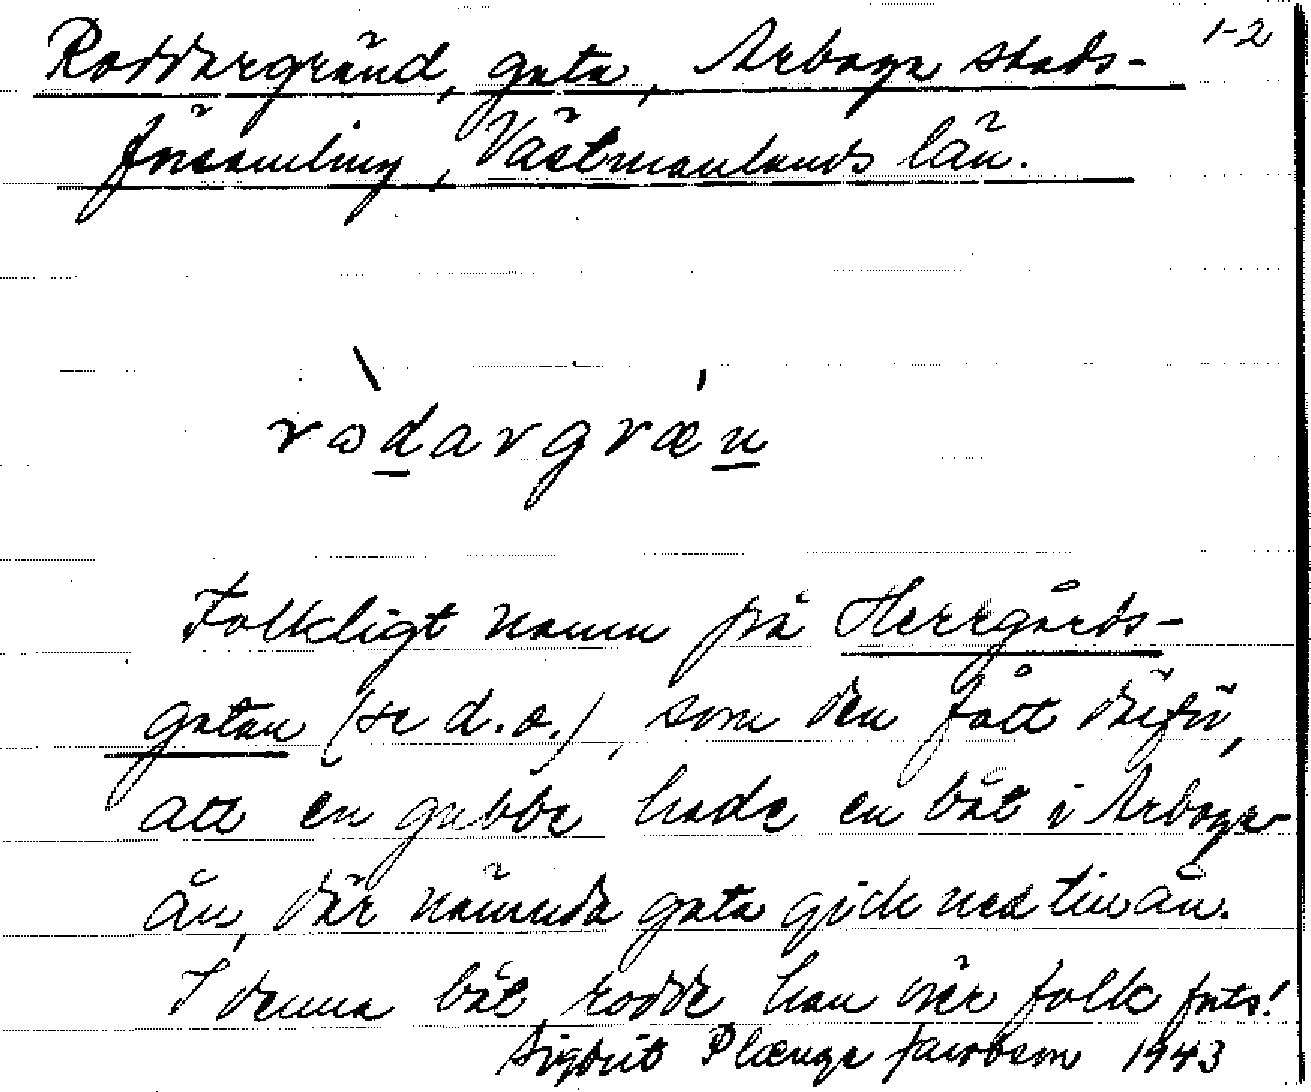 Roddargränd, gata, Arboga stads- 1-2
församling, Västmanlands län.
rədargræn
Folkligt namn på Herrgårds-
gatan (se d.o.), som den fått därför,
att en gubbe hade en båt i Arboga-
ån, där nämnda gata gick ned till ån.
I denna båt rodde han över folk
Sigbrit Plænge Jacobson 1943